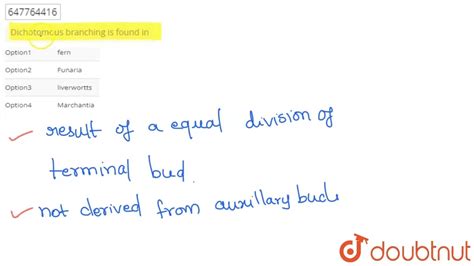 647764416
Dichotomous branching is found in
Option1 fern
Option2 Funaria
Option3 liverwortts
Option4 Marchantia
result of a equal division of
terminal bud.
not derived from auxillary buds
doubtnut